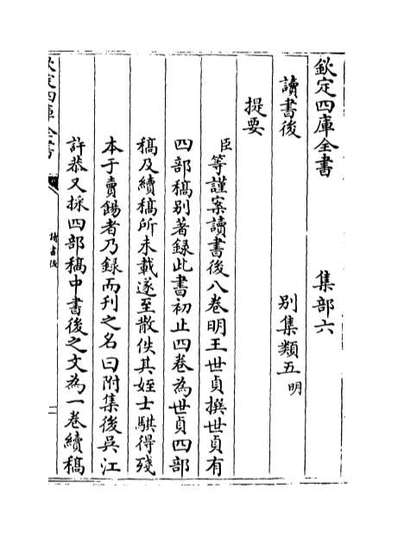 欽定四庫全書　集部六
讀書後　別集類五明
提要
臣等謹案讀書後八卷明王世貞撰世貞有
四部稿别著録此書初止四卷為世貞四部
稿及續稿所未載遂至散佚其姪士騏得殘
本于賣餳者乃録而刋之名曰附集後吳江
許恭又採四部稿中書後之文為一卷續稿
欽定四庫全書
讀書後
一